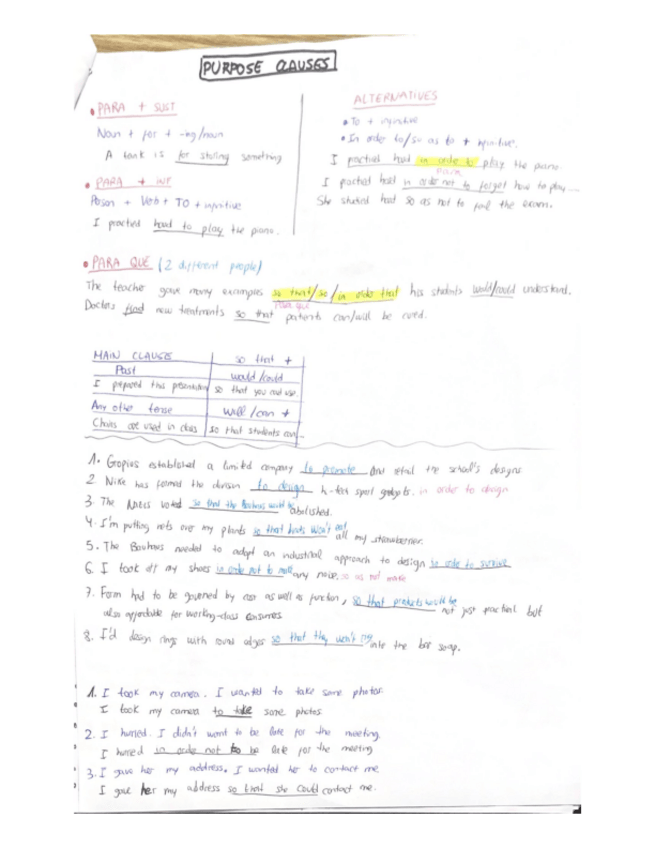 PURPOSE CLAUSES
• PARA + SUST
Noun + for + -ing/noun
A tank is for storing something
• PARA + INF
Person + Verb + TO + infinitive
I practied hard to play the piano.
ALTERNATIVES
• To + infinitive
• In order to/so as to + infinitive.
I practied hard in order to play the piano.
I practied hard in order not to forget how to play...
She studied hard so as not to fail the exam.
• PARA QUÉ (2 different people)
The teacher gave many examples so that/so/in order that his students would/could understand.
Para que
Doctors find new treatments so that patients can/will be cured.
MAIN CLAUSE so that +
Past would/could
I prepared this presentation so that you could use.
Any other tense will/can +
Chairs are used in class so that students can...
1. Gropius established a limited company to promote and retail the school's designs
2 Nike has formed the division to design h-tech sport gadgets. in order to design
3. The Nazis voted so that the Bauhaus would be abolished.
4. I'm putting nets over my plants so that birds won't eat all my strawberries.
5. The Bauhaus needed to adopt an industrial approach to design in order to survive
6. I took off my shoes in order not to make any noise. so as not make
7. Form had to be governed by cost as well as function, so that products would be not just practical but
also affordable for working-class consumers
8. I'd design rings with round edges so that they won't into the bar soap.
1. I took my camera. I wanted to take some photos.
I took my camera to take some photos
2. I hurried. I didn't want to be late for the meeting.
I hurried in order not to be late for the meeting
3. I gave her my address. I wanted her to contact me.
I gave her my address so that she could contact me.